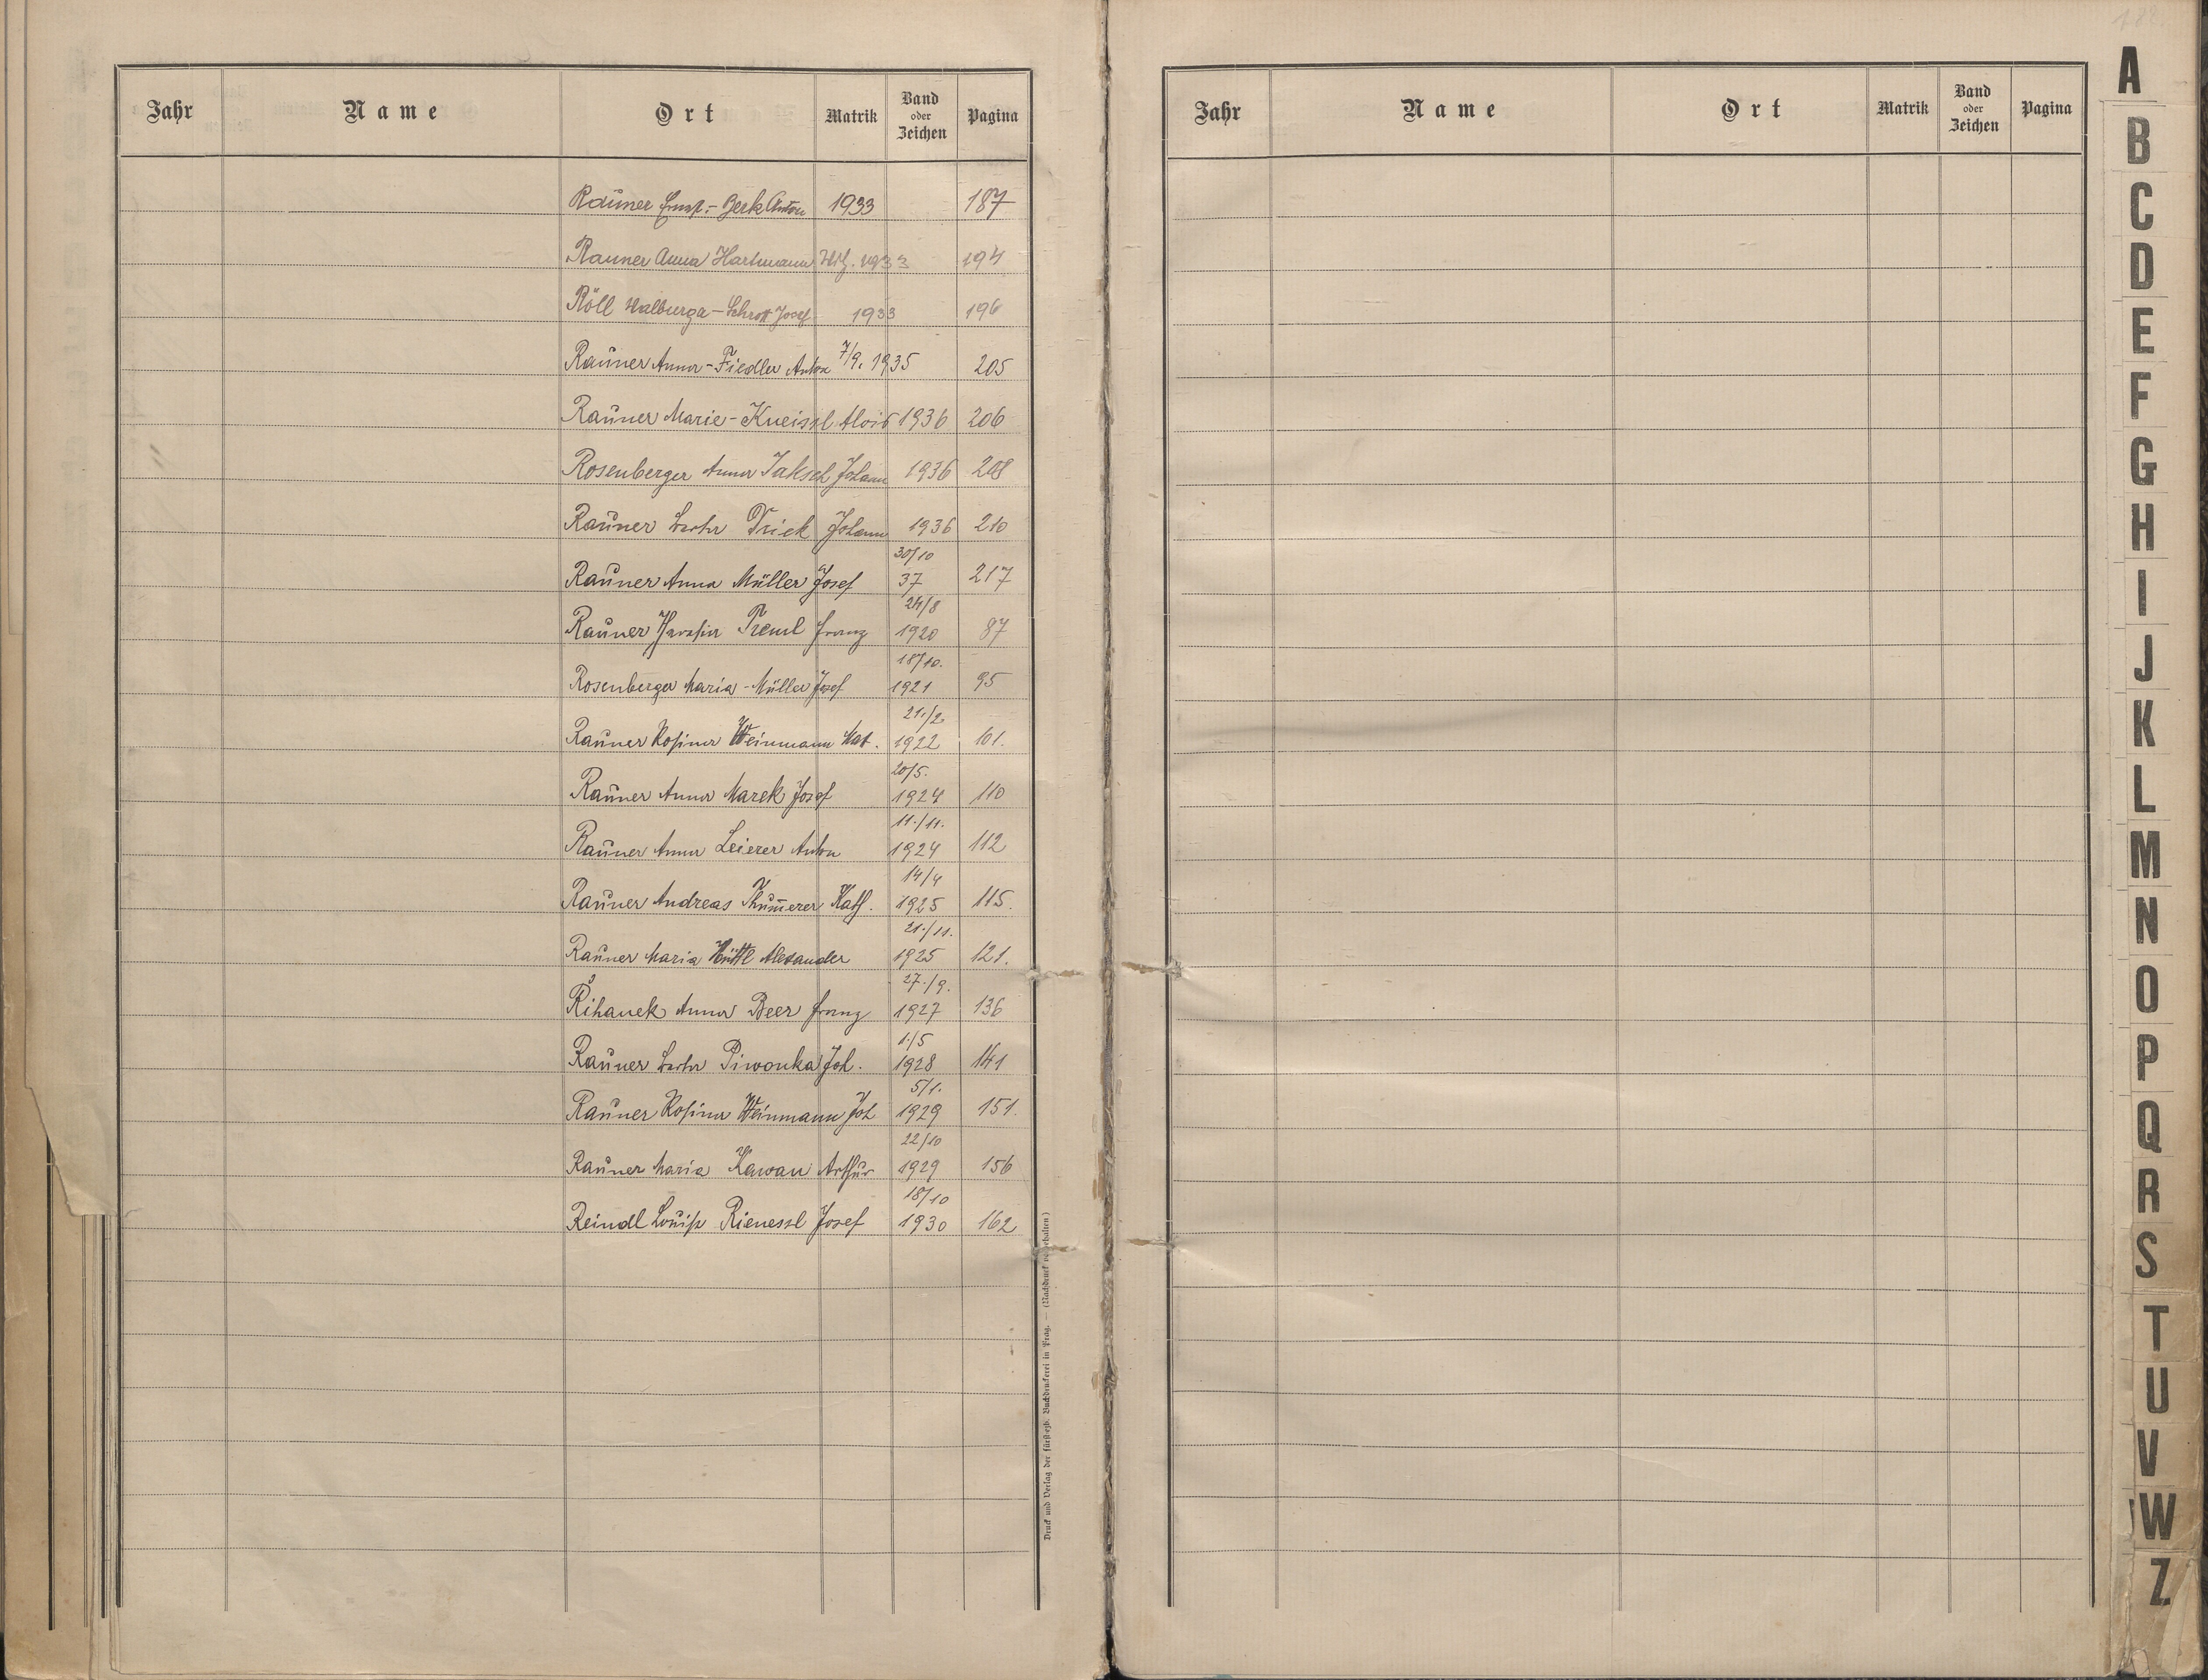 Jahr Name Ort Matrik Band oder Zeichen Pagina
Rauner Ernst - Berk Anton 1933 187
Rauner Anna Hartmann 1933 194
Röll Walburga - Schrott Josef 1933 196
Rauner Anna - Fiedler Anton 7/9. 1935 205
Rauner Marie - Kneissl Alois 1936 206
Rosenberger Anna Jaksch Johann 1936 208
Rauner Berta Trick Johann 1936 210
30/10
Rauner Anna Müller Josef 37 217
24/8
Rauner Treml Franz 1920 87
18/10.
Rosenberger Maria - Müller Josef 1921 95
21./2
Rauner Rosina Weinmann Mat. 1922 101.
20/5.
Rauner Anna Marek Josef 1924 110
11./11.
Rauner Anna Leierer Anton 1924 112
14/4
Rauner Andreas Kath. 1925 115.
21./11.
Rauner Maria Hüttl Alexander 1925 121.
27./9.
Řihanek Anna Beer Franz 1927 136
1./5
Rauner Berta Piwonka Joh. 1928 141
5/1.
Rauner Rosina Weinmann Joh 1929 151.
22/10
Rauner Maria Kawan Arthur 1929 156
18/10
Reindl Louise Rienessl Josef 1930 162
Druck und Verlag der fürsterzb. Buchdruckerei in Prag. — (Nachdruck vorbehalten)
Jahr Name Ort Matrik Band oder Zeichen Pagina
A
B
C
D
E
F
G
H
I
J
K
L
M
N
O
P
Q
R
S
T
U
V
W
Z